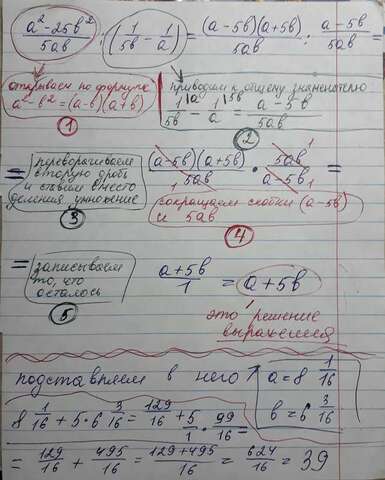 (a² - 25b²)/5ab : (1/5b - 1/a) = (a-5b)(a+5b)/5ab : (a-5b)/5ab =
открываем по формуле
a² - b² = (a-b)(a+b)
1
приводим к общему знаменателю
1/5b |a - 1/a |5b = (a-5b)/5ab
2
= переворачиваем вторую дробь и ставим вместо деления умножение
3
(a-5b)(a+5b)/5ab · 5ab/(a-5b) =
1 1 1 1
4
сокращаем скобки (a-5b)
и 5ab
= записываем
то, что
осталось
5
(a+5b)/1 = a+5b
это решение
выражения
подставляем в него
a = 8 1/16
b = 6 3/16
8 1/16 + 5·6 3/16 = 129/16 + 5/1 · 99/16 =
= 129/16 + 495/16 = (129+495)/16 = 624/16 = 39